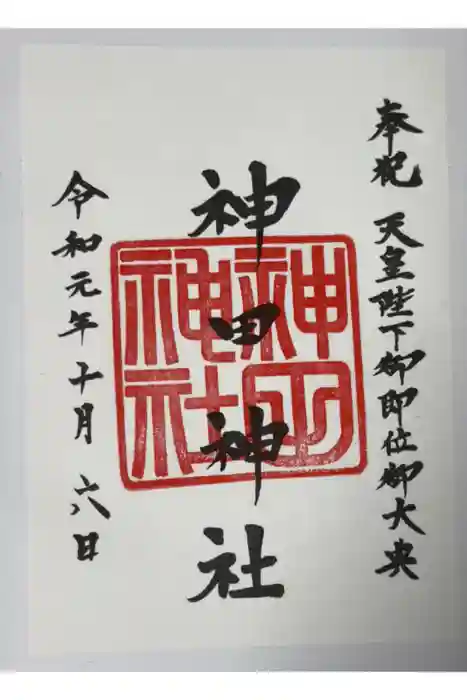 奉祝 天皇陛下御即位御大典
神田神社
令和元年十月六日